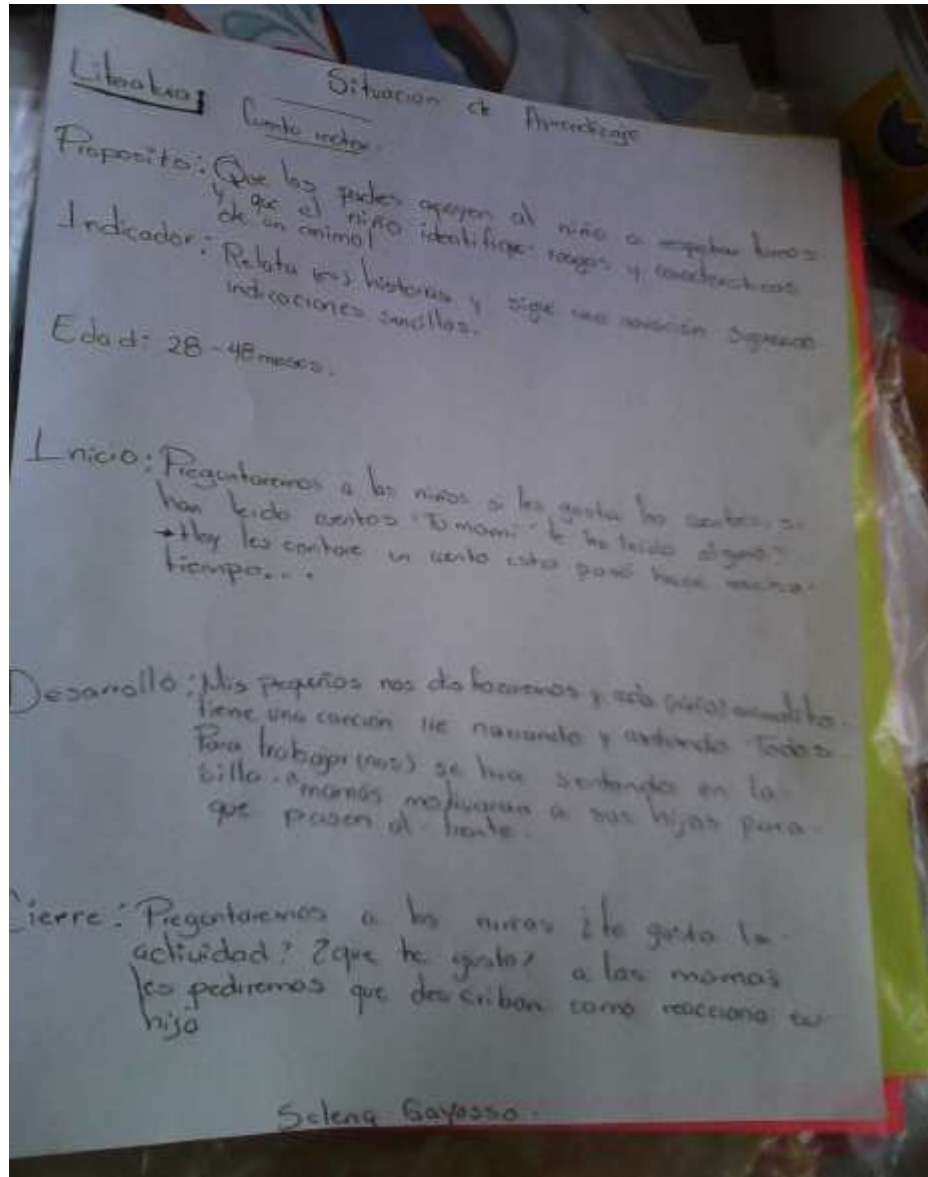 Situacion de Aprendizaje
Literatura:
Cuento motor.
Proposito: Que los padres apoyen al niño a respetar turnos
y que el niño identifique rasgos y caracteristicas
de un animal
Indicador: Relata historias y sigue una narración siguiendo
indicaciones sencillas.
Edad: 28-48 meses.
Inicio: Preguntaremos a los niños si les gustan los cuentos, si
han leido cuentos "Tu mami" te ha leido alguno?
→ Hoy les contare un cuento esto paso hace mucho
tiempo...
Desarrollo: Mis pequeños nos disfrazaremos y cada animalito
tiene una canción ire narrando y cantando Todos
Para trabajar (nos) se iran sentando en la
silla. mamás motivaran a sus hijos para
que pasen al frente.
Cierre: Preguntaremos a los niños ¿te gusto la
actividad? ¿que te gusto? a las mamas
les pediremos que describan como reacciono su
hijo
Selena Gayosso.